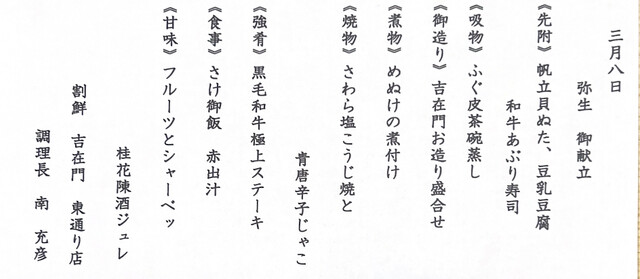 三月八日
弥生 御献立
《先附》帆立貝ぬた、豆乳豆腐
和牛あぶり寿司
《吸物》ふぐ皮茶碗蒸し
《御造り》吉在門お造り盛合せ
《煮物》めぬけの煮付け
《焼物》さわら塩こうじ焼と
肯唐辛子じゃこ
《強肴》黒毛和牛極上ステーキ
《食事》さけ御飯 赤出汁
《甘味》フルーツとシャーベッ
桂花陳酒ジュレ
割鮮 吉在門 東通り店
調理長 南 充彦